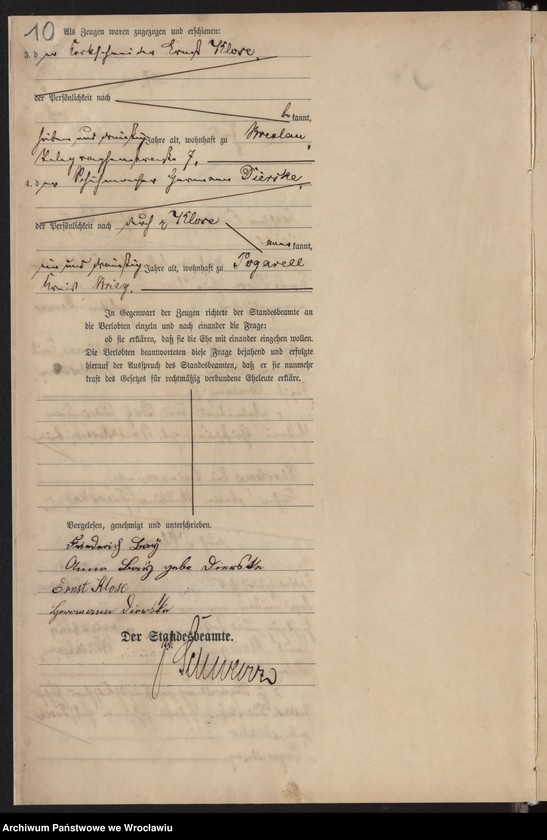 10
Als Zeugen waren zugezogen und erschienen:
3. der Korkschneider Ernst Klose,
der Persönlichkeit nach
bekannt,
sieben und dreißig Jahre alt, wohnhaft zu Breslau,
Telegraphenstraße 7,
4. der Schuhmacher Hermann Dierske,
der Persönlichkeit nach durch p Klose
anerkannt,
ein und dreißig Jahre alt, wohnhaft zu Pogarell
Kreis Brieg.
In Gegenwart der Zeugen richtete der Standesbeamte an
die Verlobten einzeln und nach einander die Frage:
ob sie erklären, daß sie die Ehe mit einander eingehen wollen.
Die Verlobten beantworteten diese Frage bejahend und erfolgte
hierauf der Ausspruch des Standesbeamten, daß er sie nunmehr
kraft des Gesetzes für rechtmäßig verbundene Eheleute erkläre.
Vorgelesen, genehmigt und unterschrieben.
Friederich
Anna gebo Dierske
Ernst Klose
Herrmann Dierske
Der Standesbeamte.
Archiwum Państwowe we Wrocławiu